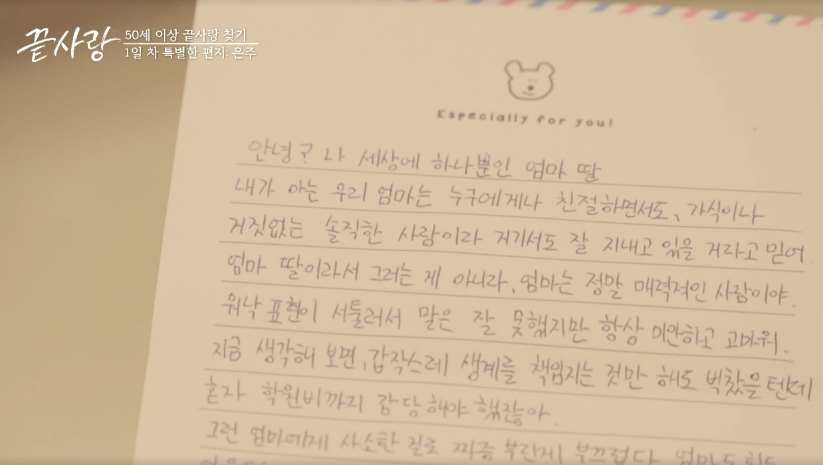 끝사랑
50세 이상 끝사랑 찾기
1일 차 특별한 편지: 은주
Especially for you!
안녕? 나 세상에 하나뿐인 엄마 딸
내가 아는 우리 엄마는 누구에게나 친절하면서도, 가식이나
거짓없는 솔직한 사람이라 거기서도 잘 지내고 있을 거라고 믿어.
엄마 딸이라서 그러는 게 아니라, 엄마는 정말 매력적인 사람이야.
워낙 표현이 서툴러서 말은 잘 못했지만 항상 미안하고 고마워.
지금 생각해 보면, 갑작스레 생계를 책임지는 것만 해도 벅찼을텐데
혼자 학원비까지 감당해야 했잖아.
그런 엄마에게 사소한 일로 짜증 부린게 부끄럽다. 엄마도